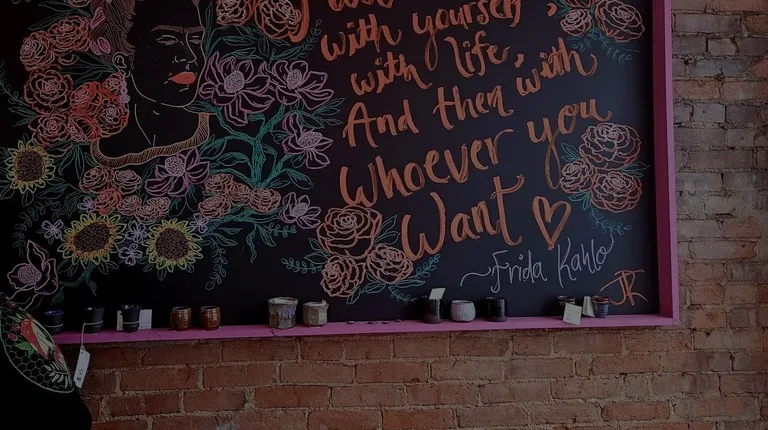 with yourself,
with life,
And then, with
Whoever you
Want ♡
~Frida Kahlo
JR